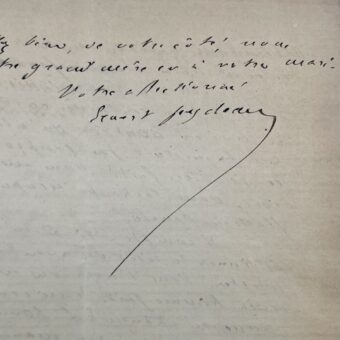 bien, de votre côté, nous
grand'mère et à votre mari.
Votre affectionné
Ernest